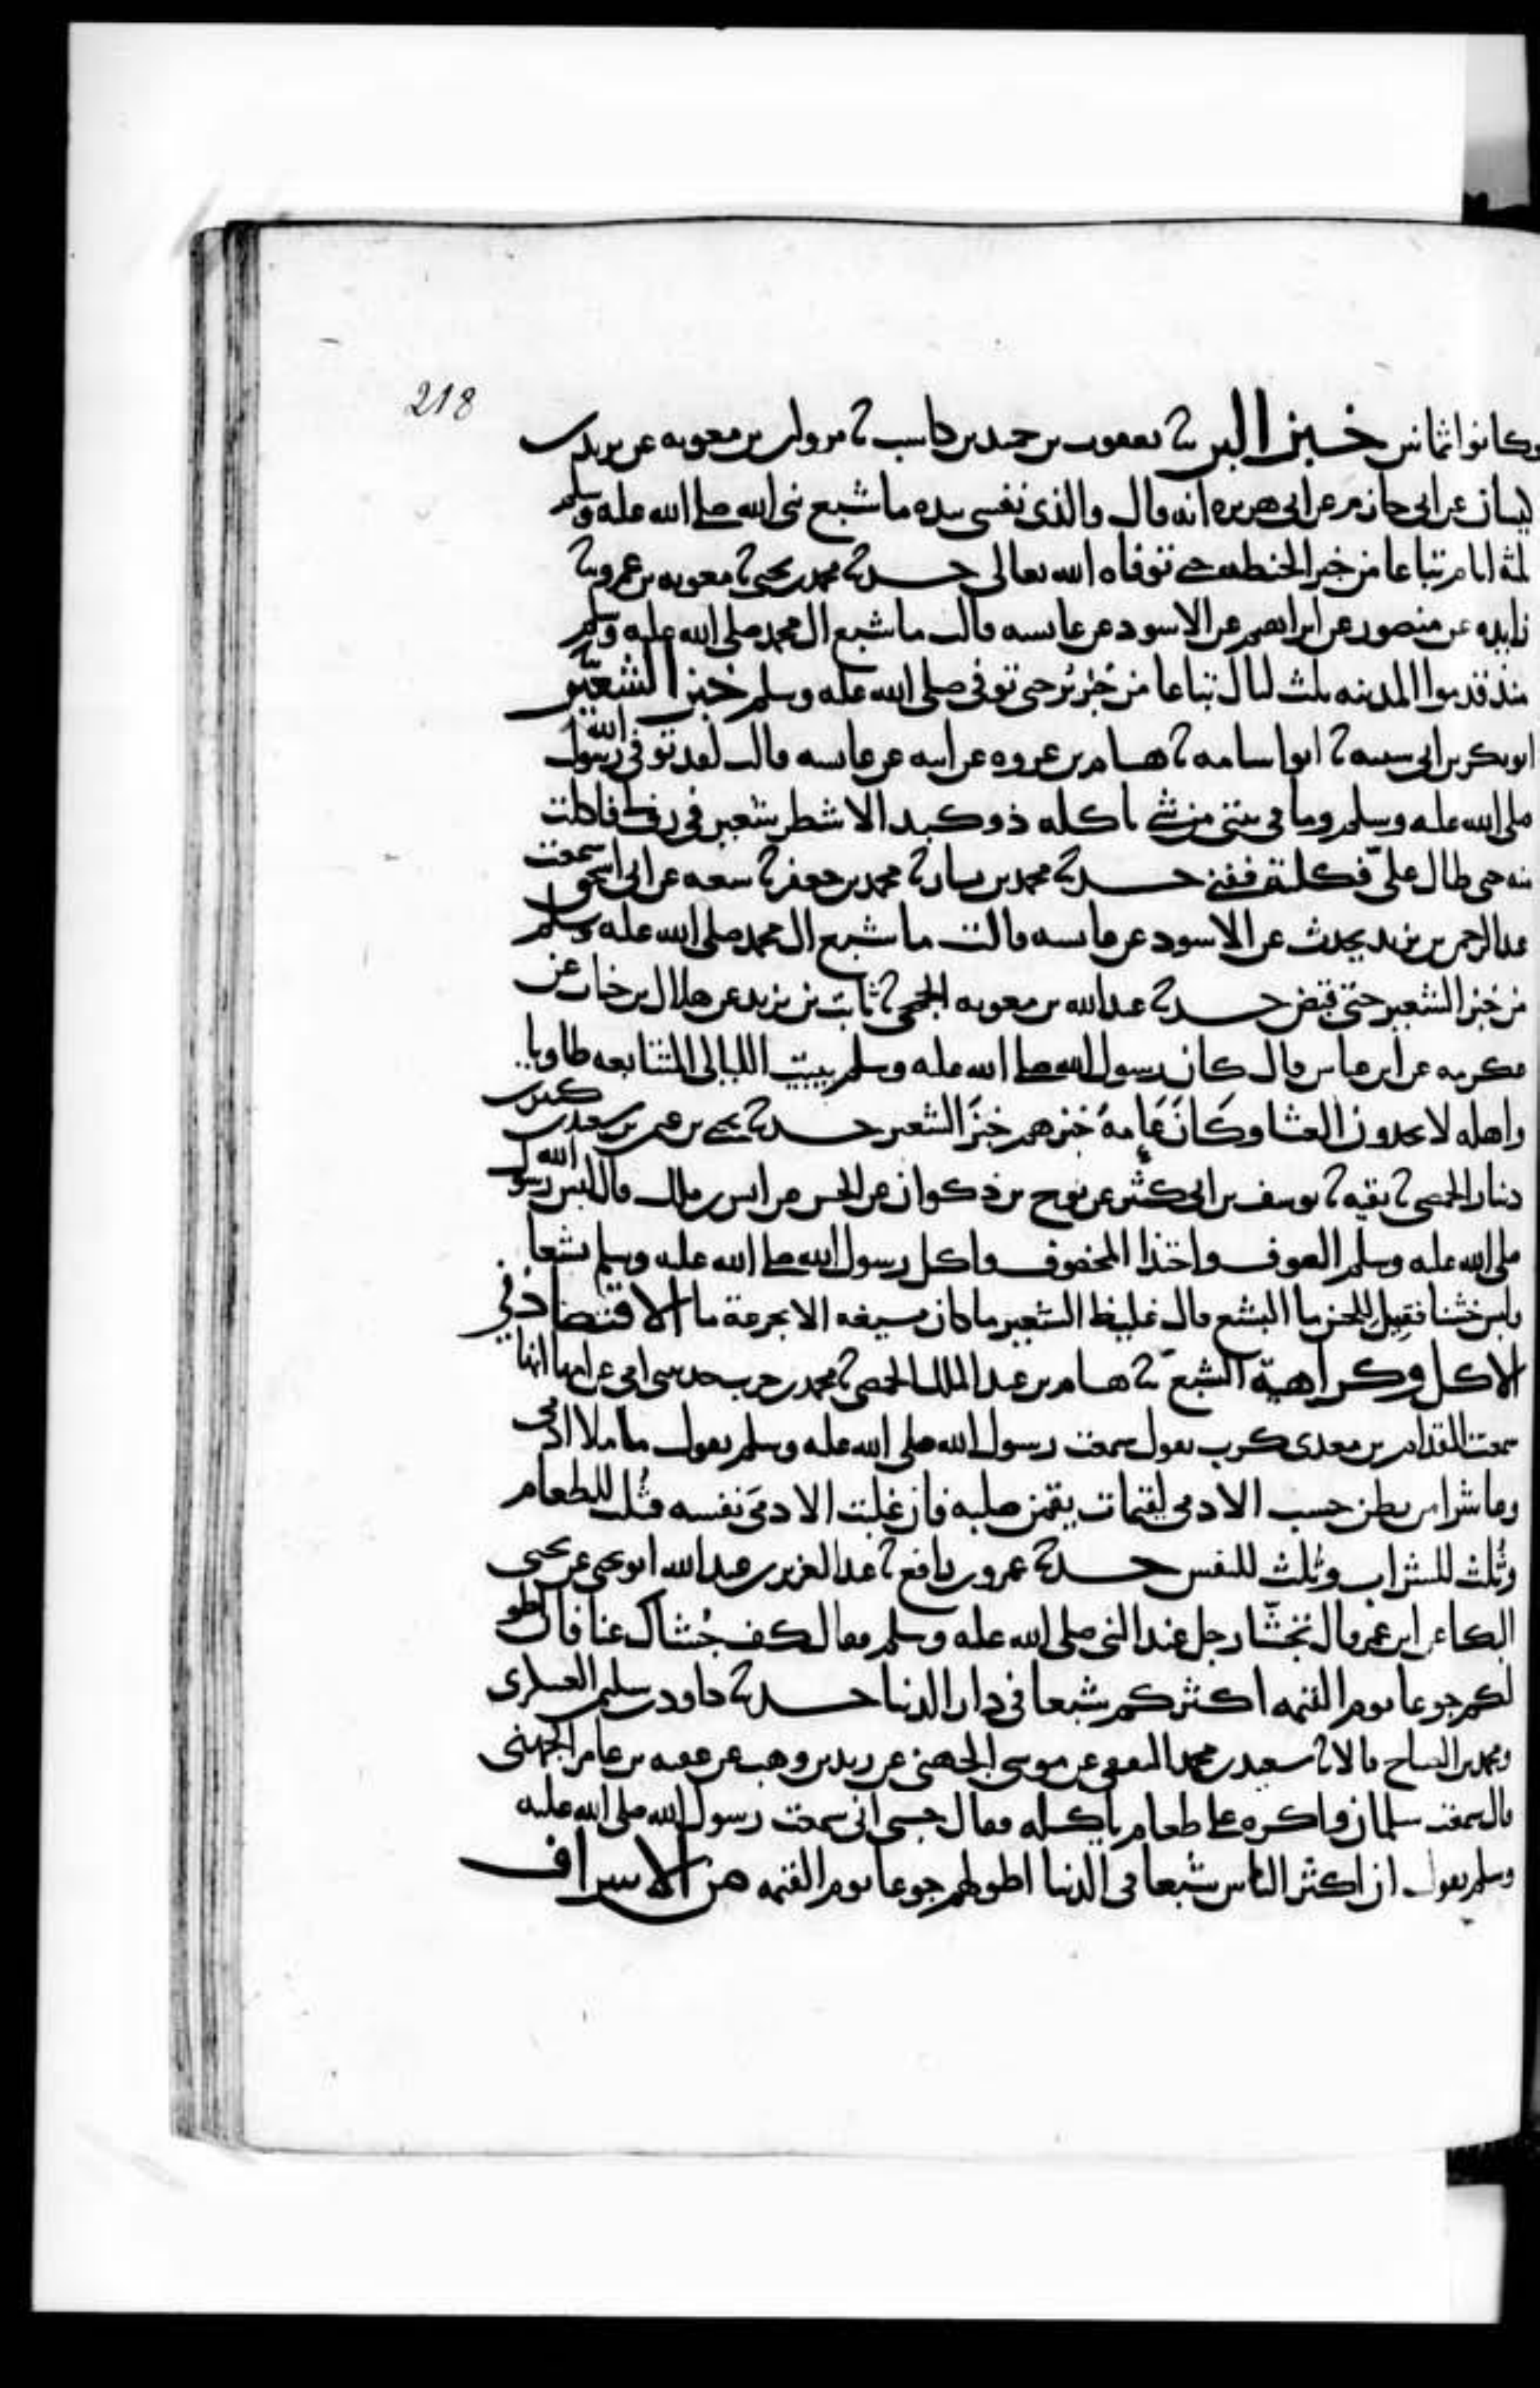 218
وكانوا ثمانين خبز البر ثنا يعقوب بن حميد بن كاسب ثنا مروان بن معويه عن يزيد بن
كيسان عن ابى حازم عن ابى هريره انه قال والذى نفسى بيده ما شبع نبى الله صلى الله عليه وسلم
ثلثة ايام تباعا من خبز الحنطه حتى توفاه الله تعالى حدثنا محمد بن يحيى ثنا معويه بن عمرو ثنا
زايده عن منصور عن ابراهيم عن الاسود عن عايشه قالت ما شبع ال محمد صلى الله عليه وسلم
منذ قدموا المدينه ثلث ليال تباعا من خبز بر حتى توفى صلى الله عليه وسلم خبز الشعير ثنا
ابو بكر بن ابى شيبه ثنا ابو اسامه ثنا هشام بن عروه عن ابيه عن عايشه قالت لقد توفى رسول الله
صلى الله عليه وسلم وما فى بيتى من شئ ياكله ذو كبد الا شطر شعير فى رف لى فاكلت
منه حتى طال علىّ فكلته ففنى حدثنا محمد بن بشار ثنا محمد بن جعفر ثنا شعبه عن ابى اسحق سمعت
عبد الرحمن بن يزيد يحدث عن الاسود عن عايشه قالت ما شبع ال محمد صلى الله عليه وسلم
من خبز الشعير حتى قبض حدثنا عبد الله بن معويه الجمحى ثنا ثابت بن يزيد عن هلال بن خباب عن
عكرمه عن ابن عباس قال كان رسول الله صلى الله عليه وسلم يبيت الليالى المتتابعه طاويا
واهله لا يجدون العشا وكان عامة خبزهم خبز الشعير حدثنا يحيى بن عثمن بن سعيد بن كثير بن
دينار الحمصى ثنا بقيه ثنا يوسف بن ابى كثير عن نوح بن ذكوان عن الحسن عن انس بن ملك قال لبس رسول الله
صلى الله عليه وسلم الصوف واحتذا المخصوف واكل رسول الله صلى الله عليه وسلم بشعا
ولبس خشنا فقيل للحسن ما البشع قال غليظ الشعير ما كان يسيغه الا بجرعة ما الاقتصاد فى
الاكل وكراهية الشبع ثنا هشام بن عبد الملك الحمصى ثنا محمد بن حرب حدثتنى امى عن امها انها
سمعت المقدام بن معدى كرب يقول سمعت رسول الله صلى الله عليه وسلم يقول ما ملا ادمى
وعا شرا من بطن حسب الادمى لقيمات يقمن صلبه فان غلبت الادمى نفسه فثلث للطعام
وثلث للشراب وثلث للنفس حدثنا عمرو بن رافع ثنا عبد العزيز بن عبد الله ابو يحيى عن يحيى
البكا عن ابن عمر قال تجشّا رجل عند النبى صلى الله عليه وسلم فقال كف جُشاك عنا فان اطو
لكم جوعا يوم القيمه اكثركم شبعا فى دار الدنيا حدثنا داود بن سليمن العسكرى
ومحمد بن الصباح قالا ثنا سعيد بن محمد الثقفى عن موسى الجهنى عن زيد بن وهب عن عطيه بن عامر الجهنى
قال سمعت سلمان واكره على طعام ياكله فقال حسبى انى سمعت رسول الله صلى الله عليه
وسلم يقول ان اكثر الناس شبعا فى الدنيا اطولهم جوعا يوم القيمه من الاسراف